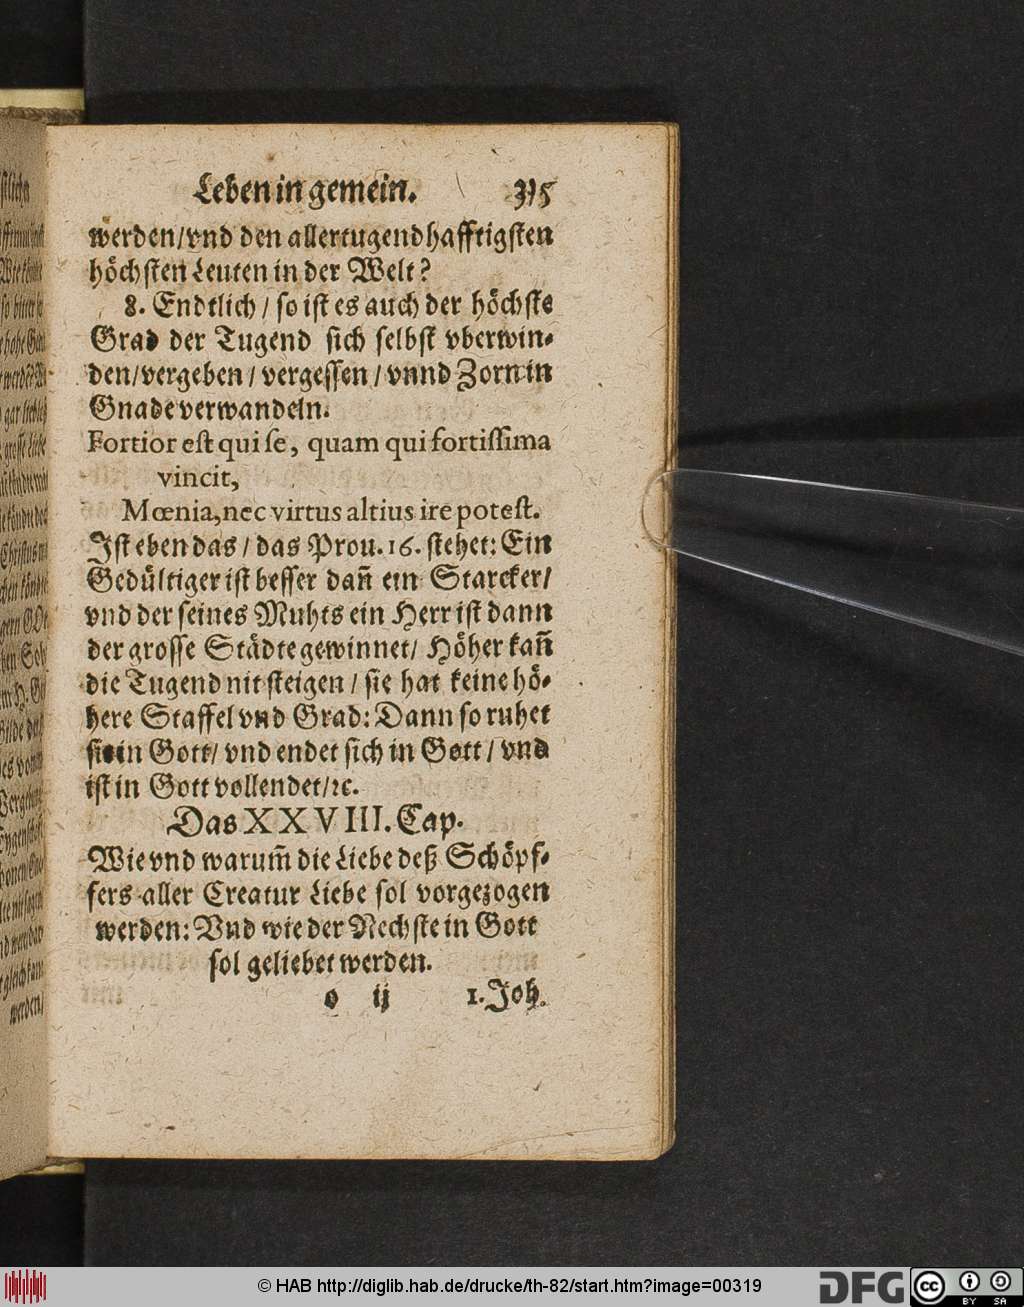 Leben in gemein. 315
werden/vnd den allertugendhafftigsten
höchsten Leuten in der Welt?
8. Endtlich / so ist es auch der höchste
Grad der Tugend sich selbst vberwin-
den/vergeben / vergessen / vnnd Zorn in
Gnade verwandeln.
Fortior est qui se, quam qui fortissima
vincit,
Mœnia, nec virtus altius ire potest.
Ist eben das / das Prou. 16. stehet: Ein
Gedültiger ist besser dañ ein Starcker/
vnd der seines Muhts ein Herr ist dann
der grosse Städte gewinnet/ Höher kañ
die Tugend nit steigen / sie hat keine hö-
here Staffel vnd Grad: Dann so ruhet
sie in Gott/ vnd endet sich in Gott / vnd
ist in Gott vollendet/ꝛc.
Das XXVIII. Cap.
Wie vnd warum̃ die Liebe deß Schöpf-
fers aller Creatur Liebe sol vorgezogen
werden: Vnd wie der Nechste in Gott
sol geliebet werden.
o ij 1. Joh.
© HAB http://diglib.hab.de/drucke/th-82/start.htm?image=00319
DFG cc BY SA